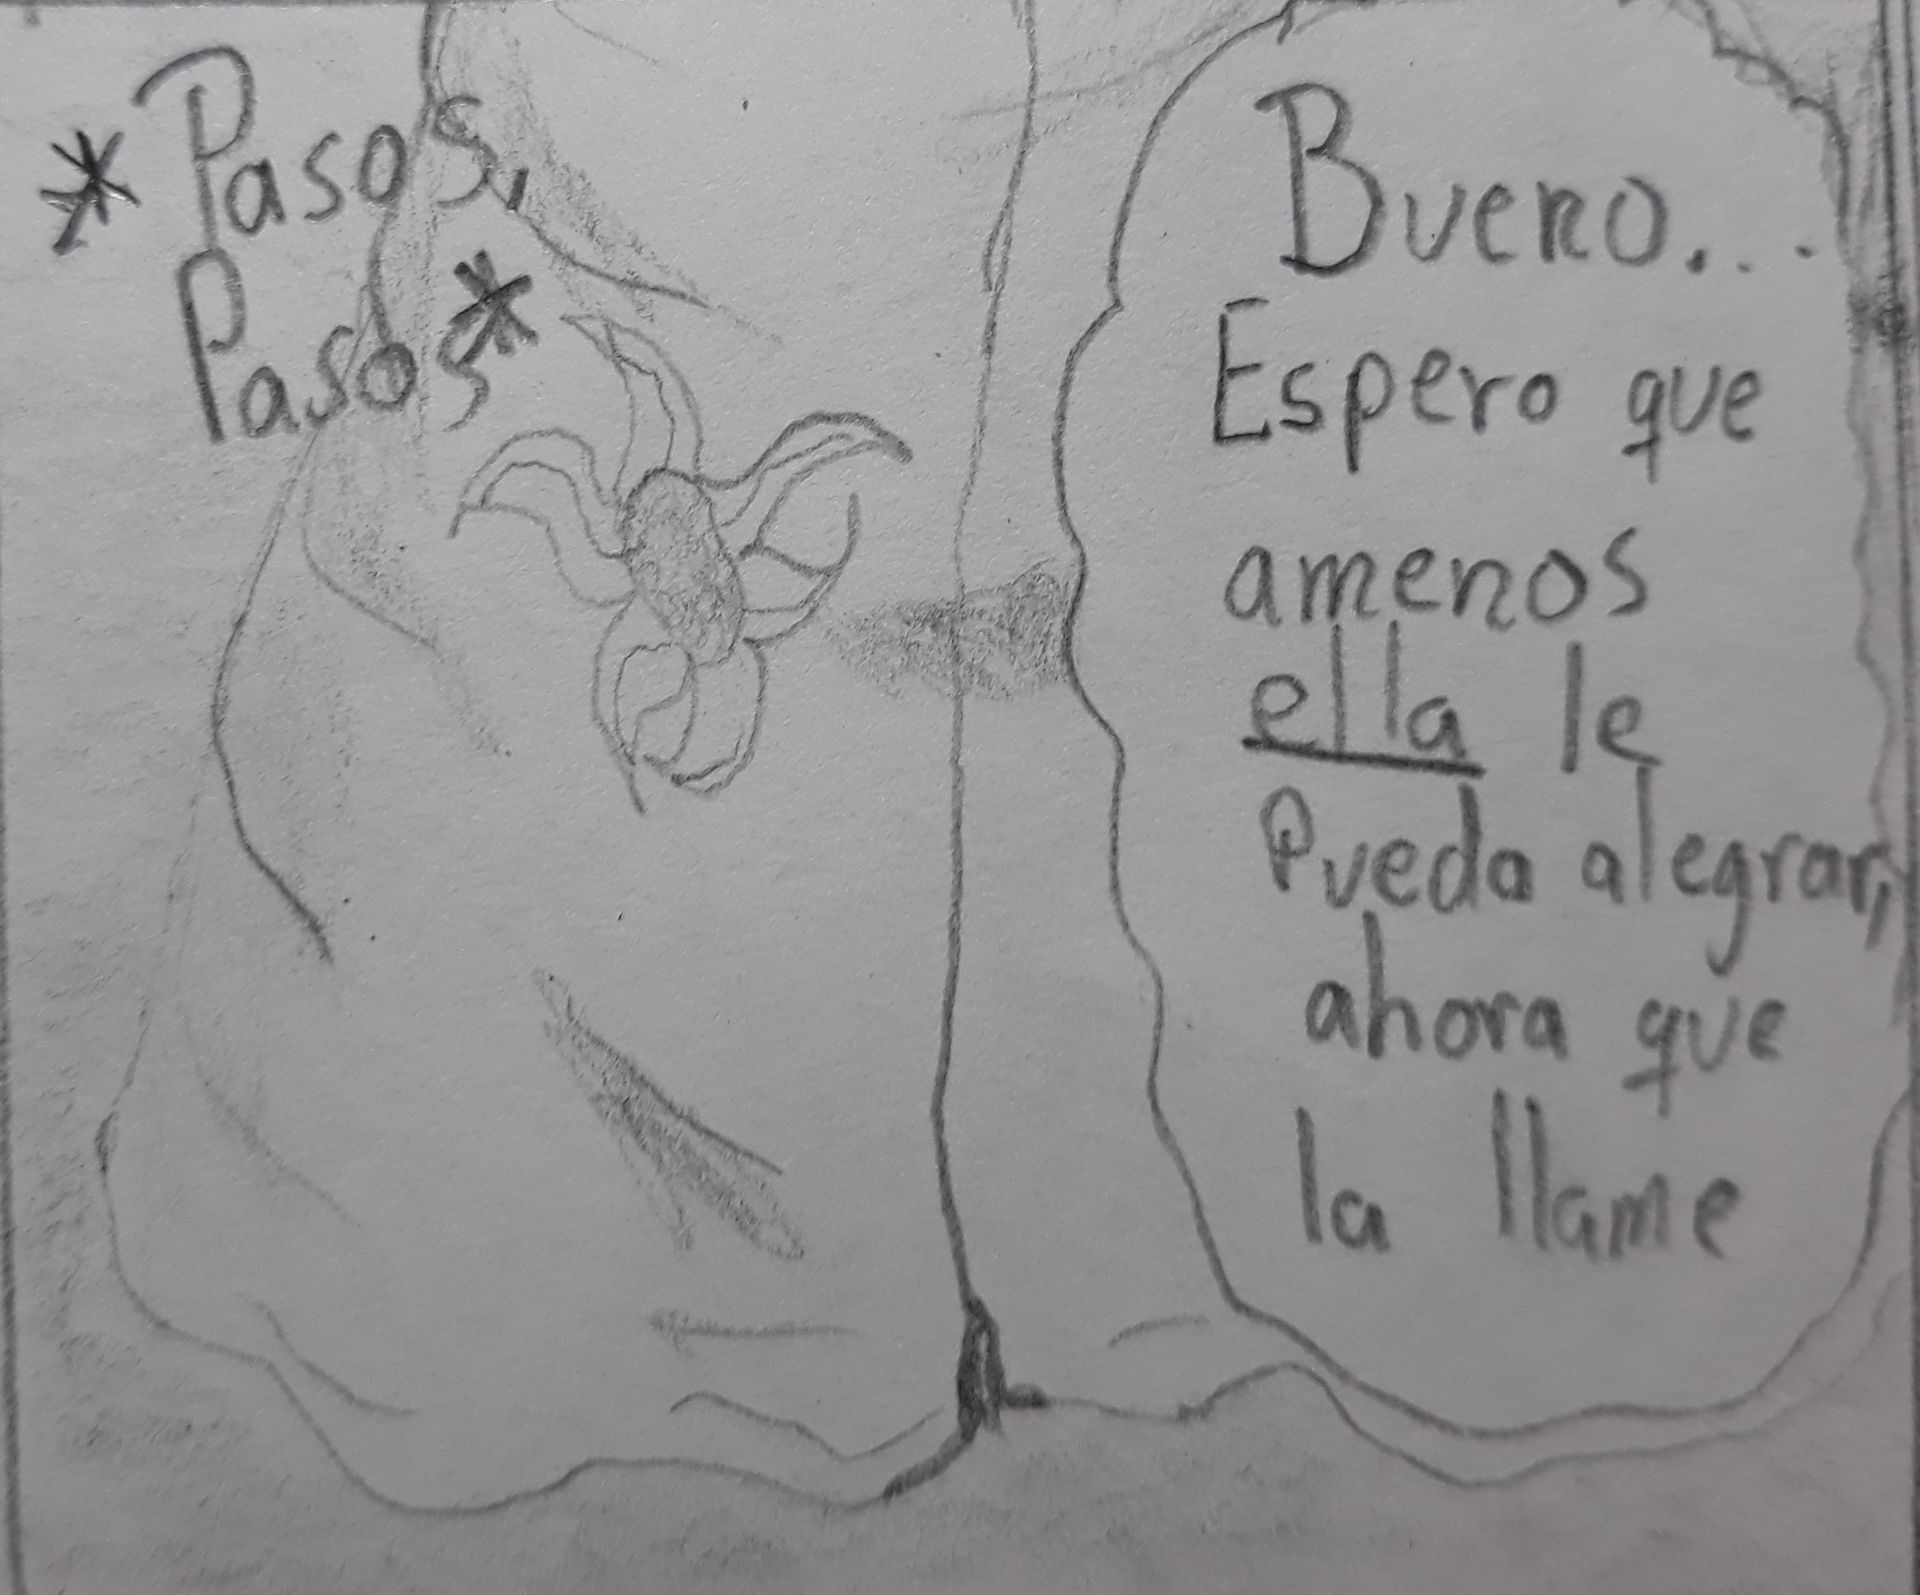 *Pasos,
Pasos*
Bueno...
Espero que
amenos
ella le
Pueda alegrar,
ahora que
la llame